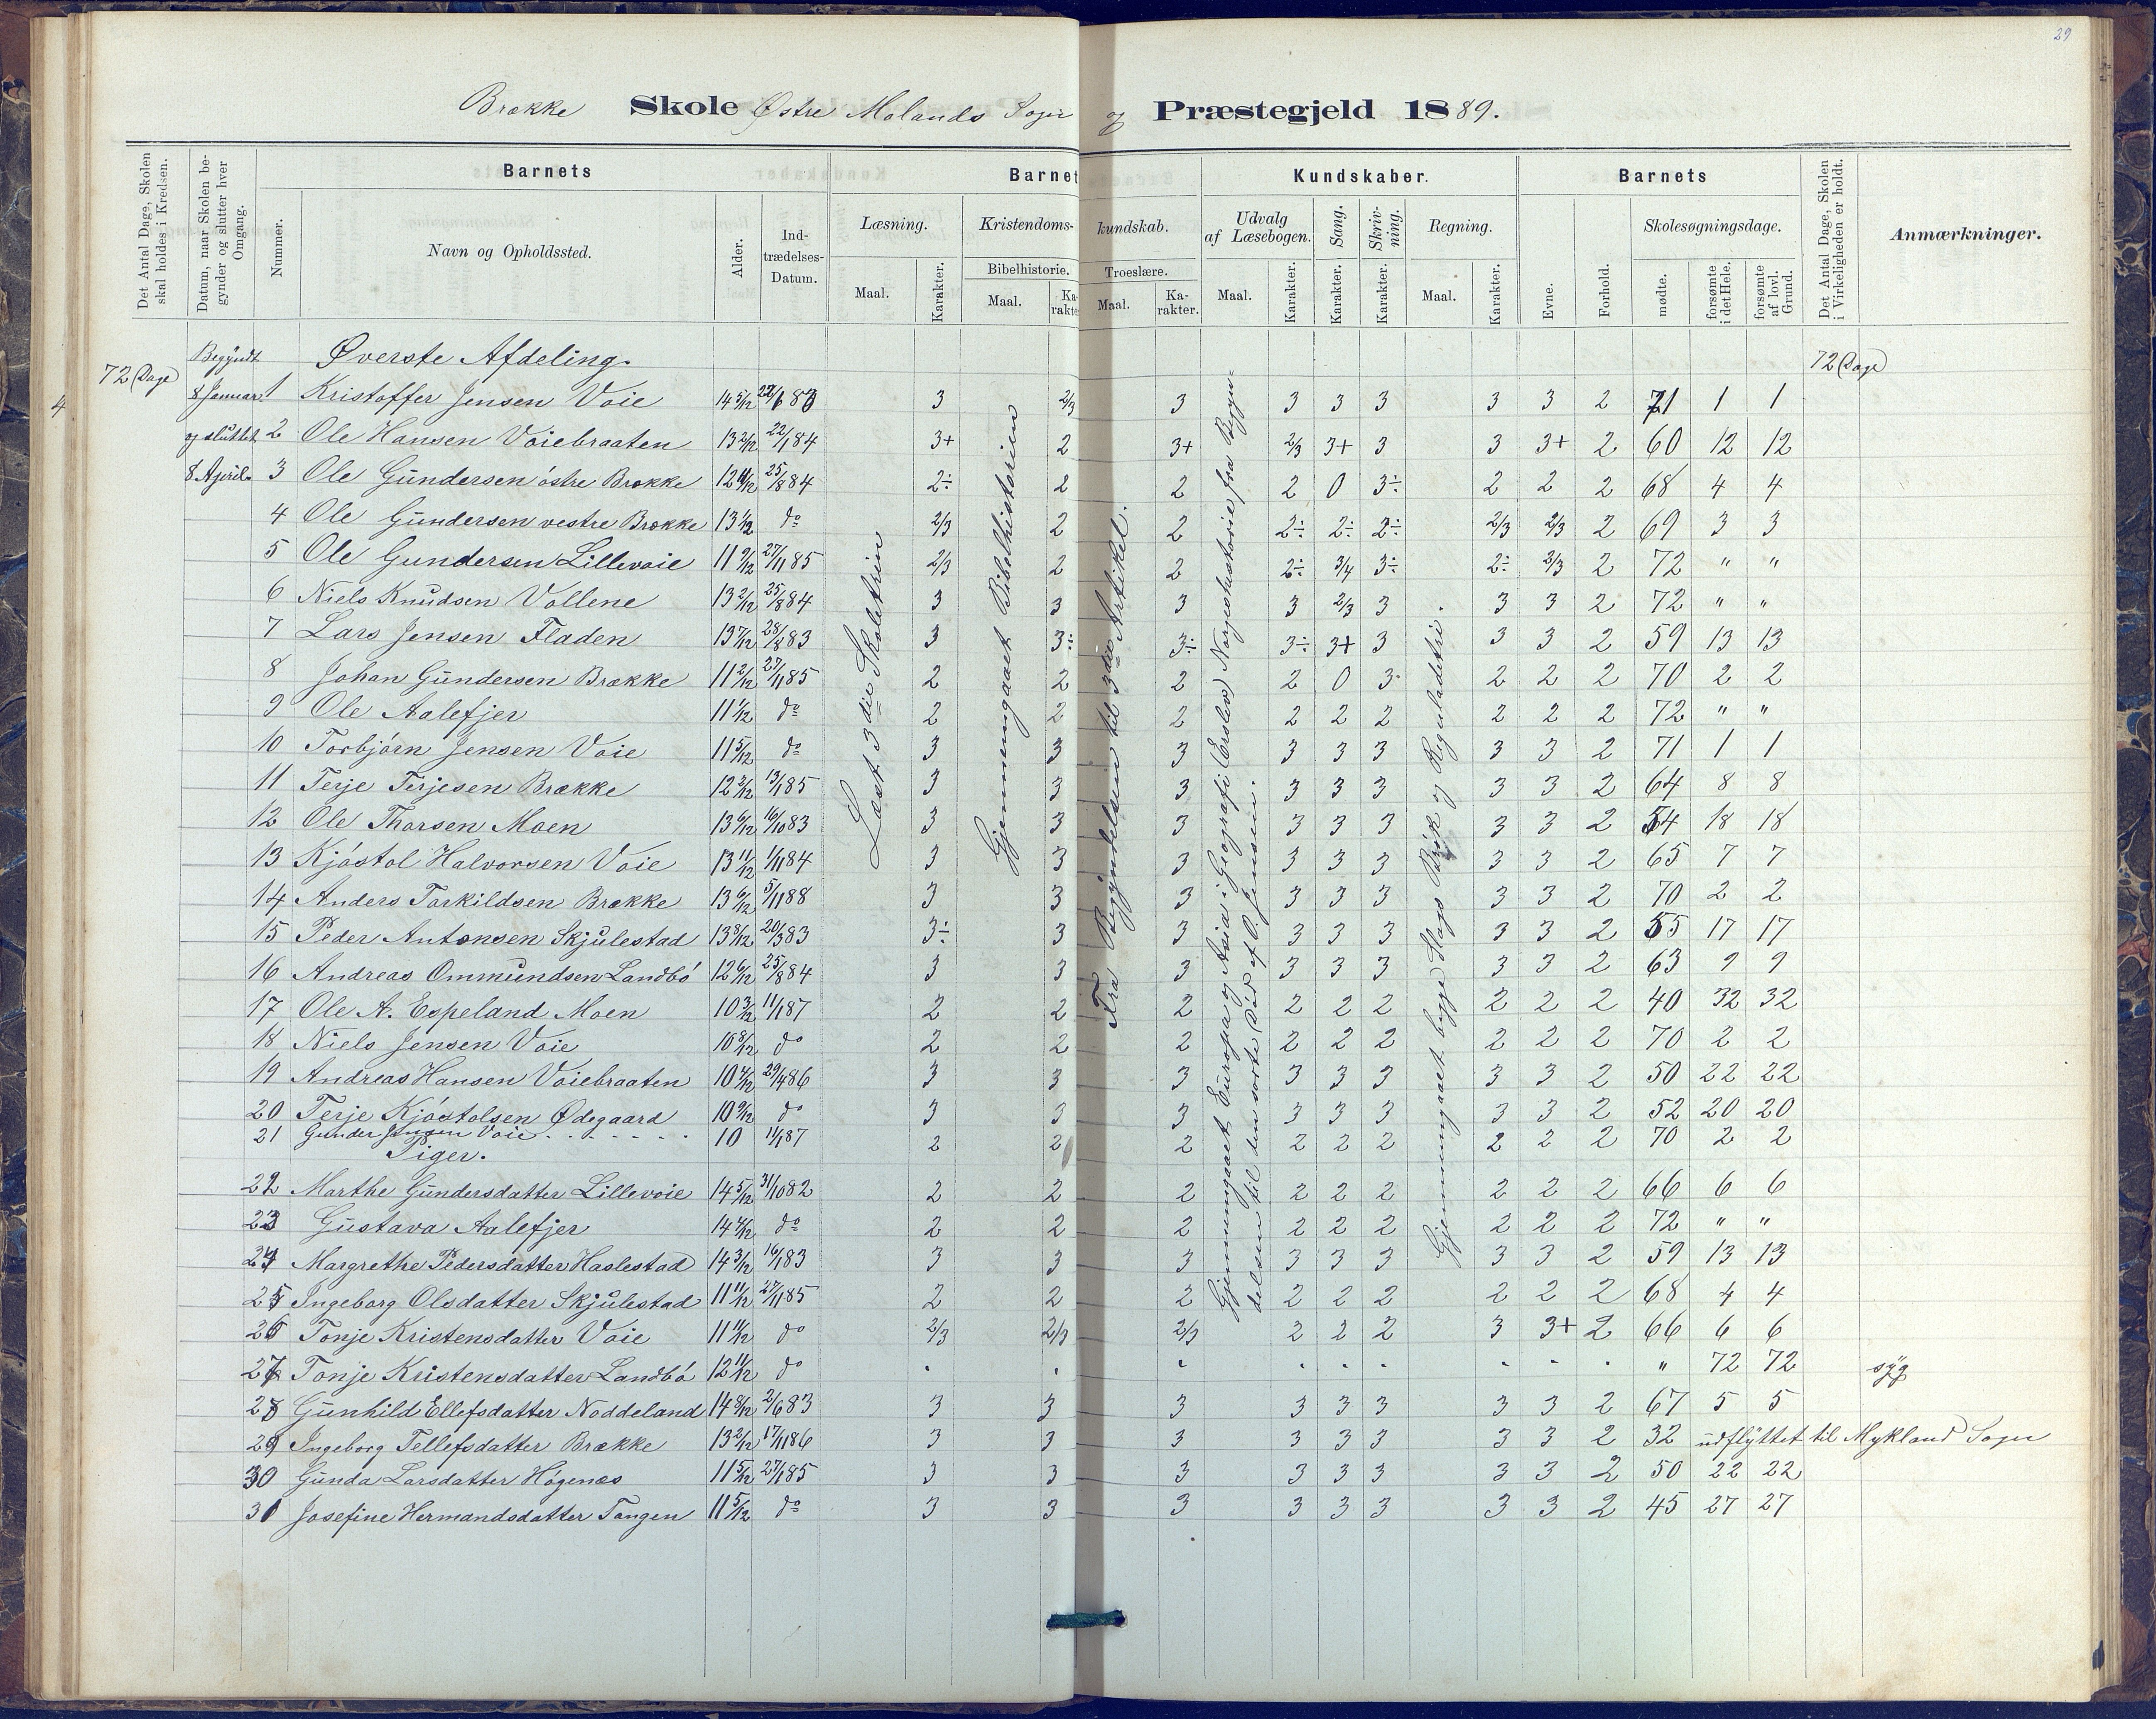 29
Brække Skole Østre Molands Sogn og Præstegjeld 1889.
Det Antal Dage, Skolen skal holdes i Kredsen.
Datum, naar Skolen begynder og slutter hver Omgang.
Barnets
Nummer.
Navn og Opholdssted.
Alder.
Ind-trædelses-Datum.
Barnets Kundskaber.
Læsning.
Maal.
Karakter.
Kristendoms-kundskab.
Bibelhistorie.
Maal.
Karakter.
Troeslære.
Maal.
Ka-rakter.
Udvalg af Læsebogen.
Maal.
Karakter.
Sang.
Karakter.
Skriv-ning.
Karakter.
Regning.
Maal.
Karakter.
Barnets
Evne.
Forhold.
Skolesøgningsdage.
mødte.
forsømte i det Hele.
forsømte af lovl. Grund.
Det Antal Dage, Skolen i Virkeligheden er holdt.
Anmærkninger.
4
72 Dage
Begyndt
8 Januar
og sluttet
8 April.
72 Dage
Læst 3die Skoletrin
Gjennemgaaet Bibelhistorien
Fra Begyndelsen til 3die Artikel.
Gjennemgaaet Europa og Asia i Geografi (Erslev) Norgeshistorie fra Begyn-
delsen til den sorte Død af O. Jensen.
Gjennemgaaet begge Slags Brøk og Reguladetri.
Øverste Afdeling.
1 Kristoffer Jensen Voie 14 5/12 22/6 83 3 2/3 3 3 3 3 3 3 2 71 1 1
2 Ole Hansen Voiebraaten 13 2/12 22/1 84 3+ 2 3+ 2/3 3+ 3 3 3+ 2 60 12 12
3 Ole Gundersen østre Brække 12 11/12 25/8 84 2÷ 2 2 2 0 3÷ 2 2 2 68 4 4
4 Ole Gundersen vestre Brække 13 1/12 do 2/3 2 2 2÷ 2÷ 2÷ 2/3 2/3 2 69 3 3
5 Ole Gundersen Lillevoie 11 9/12 27/11 85 2/3 2 2 2÷ 3/4 3÷ 2÷ 2/3 2 72 " "
6 Niels Knudsen Vollene 13 2/12 25/8 84 3 3 3 3 2/3 3 3 3 2 72 " "
7 Lars Jensen Fladen 13 7/12 28/8 83 3 3÷ 3÷ 3÷ 3+ 3 3 3 2 59 13 13
8 Johan Gundersen Brække 11 2/12 27/11 85 2 2 2 2 0 3 2 2 2 70 2 2
9 Ole Aalefjer 11 1/12 do 2 2 2 2 2 2 2 2 2 72 " "
10 Torbjørn Jensen Voie 11 5/12 do 3 3 3 3 3 3 3 3 2 71 1 1
11 Terje Terjesen Brække 12 2/12 13/1 85 3 3 3 3 3 3 3 3 2 64 8 8
12 Ole Thorsen Moen 13 6/12 16/10 83 3 3 3 3 3 3 3 3 2 54 18 18
13 Kjøstol Halvorsen Voie 13 11/12 1/11 84 3 3 3 3 3 3 3 3 2 65 7 7
14 Anders Torkildsen Brække 13 6/12 5/11 88 3 3 3 3 3 3 3 3 2 70 2 2
15 Peder Antonsen Skjulestad 13 8/12 20/3 83 3÷ 3 3 3 3 3 3 3 2 55 17 17
16 Andreas Ommundsen Landbø 12 6/12 25/8 84 3 3 3 3 3 3 3 3 2 63 9 9
17 Ole A. Espeland Moen 10 3/12 11/1 87 2 2 2 2 2 2 2 2 2 40 32 32
18 Niels Jensen Voie 10 8/12 do 2 2 2 2 2 2 2 2 2 70 2 2
19 Andreas Hansen Voiebraaten 10 4/12 29/4 86 3 3 3 3 3 3 3 3 2 50 22 22
20 Terje Kjøstolsen Ødegaard 10 9/12 do 3 3 3 3 3 3 3 3 2 52 20 20
21 Gunder Jensen Voie 10 11/1 87 2 2 2 2 2 2 2 2 2 70 2 2
Piger.
22 Marthe Gundersdatter Lillevoie 14 5/12 31/10 82 2 2 2 2 2 2 2 2 2 66 6 6
23 Gustava Aalefjer 14 4/12 do 2 2 2 2 2 2 2 2 2 72 " "
24 Margrethe Pedersdatter Haslestad 14 3/12 16/1 83 3 3 3 3 3 3 3 3 2 59 13 13
25 Ingeborg Olsdatter Skjulestad 11 11/12 27/11 85 2 2 2 2 2 2 2 2 2 68 4 4
26 Tonje Kristensdatter Voie 11 11/12 do 2/3 2/3 2/3 2 2 2 3 3+ 2 66 6 6
27 Tonje Kristensdatter Landbø 12 11/12 do " 72 72 syg
28 Gunhild Ellefsdatter Noddeland 14 8/12 2/6 83 3 3 3 3 3 3 3 3 2 67 5 5
29 Ingeborg Tellefsdatter Brække 13 2/12 17/11 86 3 3 3 3 3 3 3 3 2 32 udflyttet til Mykland Sogn
30 Gunda Larsdatter Høgenæs 11 5/12 27/1 85 3 3 3 3 3 3 3 3 2 50 22 22
31 Josefine Hermandsdatter Tangen 11 5/12 do 3 3 3 3 3 3 3 3 2 45 27 27